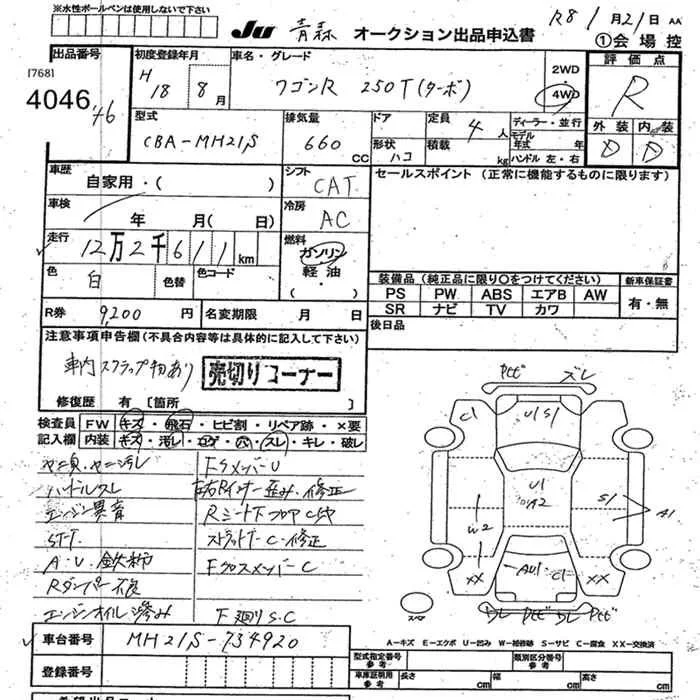 ※水性ボールペンは使用しないで下さい
JU 青森 オークション出品申込書
R8 1月21日 AA
①会場控
出品番号
[768]
4046
初度登録年月
H 18 8月
車名・グレード
ワゴンR 250T(ターボ)
2WD
4WD
評価点
R
外装 内装
D D
型式
CBA-MH21S
排気量
660 cc
ドア
形状 ハコ
定員 4人
積載 kg
ディーラー・並行
モデル年式 年
ハンドル 左・右
車歴
自家用・( )
シフト
CAT
セールスポイント (正常に機能するものに限ります)
車検
年 月( 日)
冷房
AC
走行
12万2千611km
燃料
ガソリン
軽油
・( )
色
白
色替
色コード
装備品 (純正品に限り○をつけてください)
新車保証書
PS PW ABS エアB AW
SR ナビ TV カワ
有・無
R券
9,200円
名変期限 月 日
後日品
注意事項申告欄(不具合内容等は具体的に記入して下さい)
売切りコーナー
修復歴 有 [箇所 ]
検査員 FW キズ・飛石・ヒビ割・リペア跡・×要
記入欄 内装 キズ・汚レ・コゲ・穴・スレ・キレ・破レ
ハンドルスレ
エンジン異音
ST-T
A・U・鉄柿
Rダンパー不良
エンジンオイル滲み
左右Rインナー歪み・修正
F廻りS.C
C1
U1S1
U1
A2
S1
A1
W2
XX
AU1
C1
XX
スペア
A=キズ E=エクボ U=凹み W=補修跡 S=サビ C=腐食 XX=交換済
車台番号
MH21S-734920
登録番号
型式指定番号 参考
類別区分番号 参考
車庫証明用 参考
長さ cm 幅 cm 高さ cm